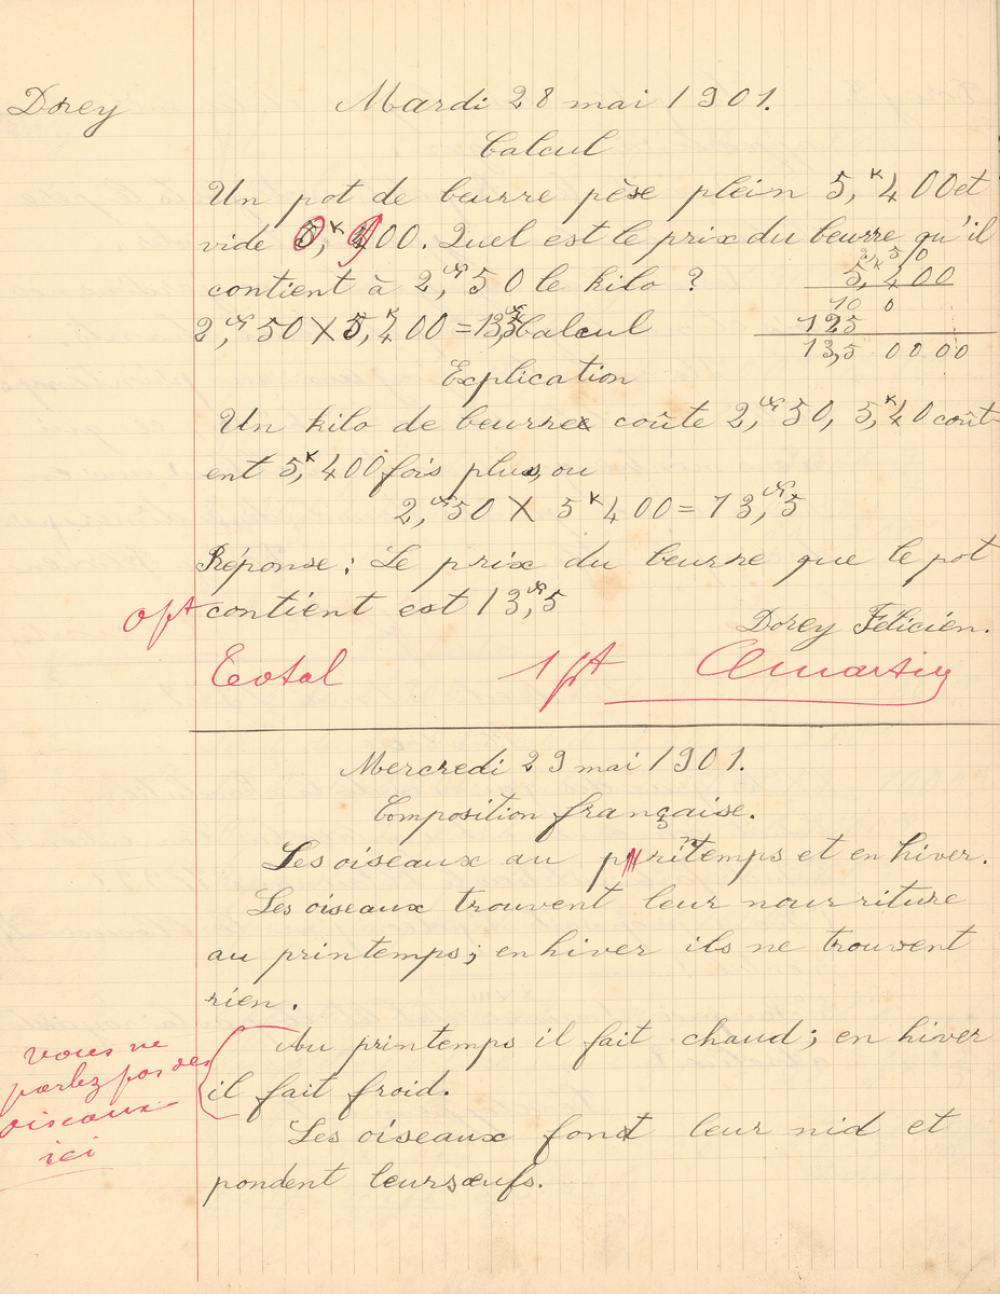 Dorey
Mardi 28 mai 1901.
Calcul
Un pot de beurre pèse plein 5,ᴷ400 et
vide 0,ᴷ900. Quel est le prix du beurre qu'il
contient à 2,ᶠʳ50 le kilo ?
2,50
5,ᴷ400
10 0
125
13,5 00 00
2,ᶠʳ50 X 5,ᴷ400 = 13,ᶠʳ5 Calcul
Explication
Un kilo de beurre coûte 2,ᶠʳ50, 5,ᴷ40 coût-
ent 5,ᴷ400 fois plus, ou
2,ᶠʳ50 X 5ᴷ400 = 13,ᶠʳ5
Réponse : Le prix du beurre que le pot
contient est 13,ᶠʳ5
0 pt
Dorey Félicien.
Total 1 pt Amartin
Mercredi 29 mai 1901.
Composition française.
Les oiseaux au printemps et en hiver.
Les oiseaux trouvent leur nourriture
au printemps ; en hiver ils ne trouvent
rien.
Au printemps il fait chaud ; en hiver
il fait froid.
vous ne
parlez pas des
oiseaux
ici
Les oiseaux font leur nid et
pondent leurs œufs.